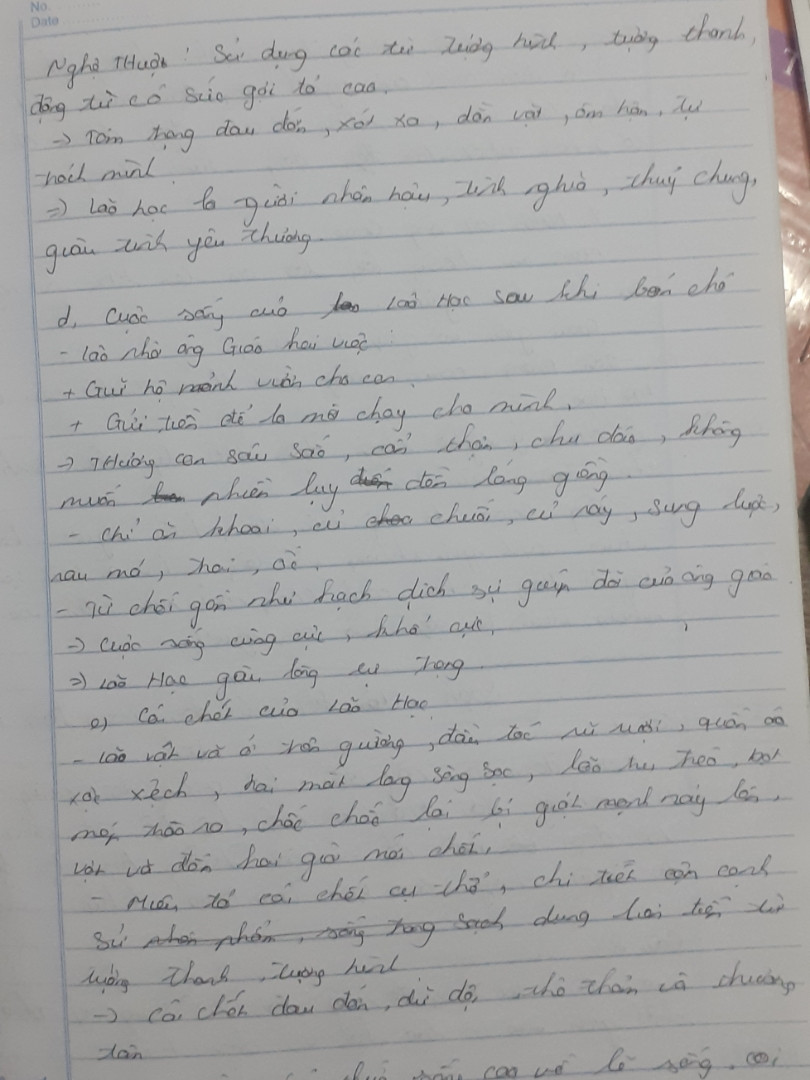 No.
Date
Nghệ Thuật: Sử dụng các từ tượng hình, tượng thanh,
động từ có sức gợi tả cao.
-> Tâm trạng đau đớn, xót xa, dằn vặt, ân hận, tự
trách mình.
=> Lão hạc là người nhân hậu, tình nghĩa, thuỷ chung,
giàu tình yêu thương.
d, Cuộc sống của Lão Hạc sau khi bán chó
- Lão nhờ ông Giáo hai việc
+ Gửi hộ mảnh vườn cho con.
+ Gửi tiền để lo ma chay cho mình.
-> Thương con sâu sắc, cẩn thận, chu đáo, không
muốn phiền lụy đến láng giềng.
- chỉ ăn khoai, củ chuối, củ ráy, sung luộc,
rau má, trai, ốc.
- Từ chối gần như hạch dịch sự giúp đỡ của ông giáo
-> Cuộc sống cùng cực, khổ cực.
=> Lão Hạc giàu lòng tự trọng.
e) Cái chết của Lão Hạc
- Lão vật vã ở trên giường, đầu tóc rũ rượi, quần áo
xộc xệch, hai mắt long sòng sọc, lão tru tréo, bọt
mép trào ra, chốc chốc lại bị giật mạnh nảy lên,
vật vã đến hai giờ mới chết.
- Miêu tả cái chết cụ thể, chi tiết cận cảnh
sử nhân phẩm, sống trong sạch dụng loại tiến từ
tượng thanh, tượng hình
-> Cái chết đau đớn, dữ dội, thê thảm và chương
tàn
cao về lẽ sống, coi